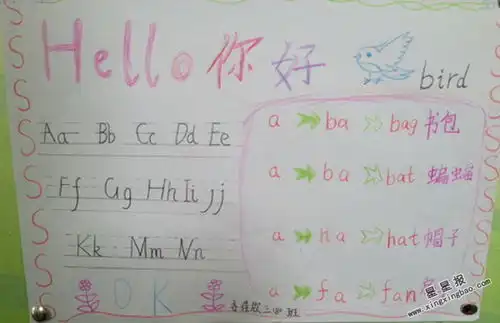 Hello 你好
bird
Aa Bb Cc Dd Ee
Ff Gg Hh Ii Jj
Kk Mm Nn
OK
a ba bag 书包
a ba bat 蝙蝠
a ha hat 帽子
a fa fan
星星报
www.xingxingbao.com